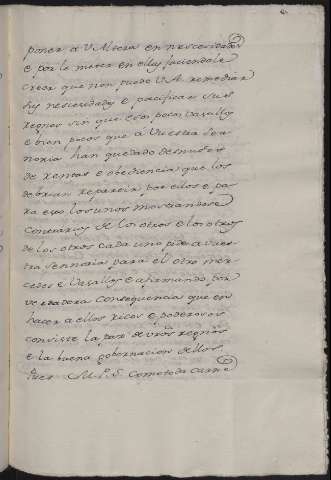 poner a V. Alteza en nescesidades
e por la meter en ellas faciendole
creer que non puede V. A. remediar
sus nescesidades e pacificar sus
regnos sin que esos pocos vasallos
e bien pocos que a Vuestra Sen
noria han quedado desnudos
de rentas e obediencia que los
debrian repartir por ellos e pa
ra eso los unos mostrandose
contrarios de los otros e los otros
de los otros cada uno pide a vues
tra Sennoria para el otro mer
cedes e vasallos e afirmando por
verdadera consequencia que en
hacer a ellos ricos e poderosos
consiste la paz de vros regnos
e la buena gobernacion dellos
Pues como toda carne